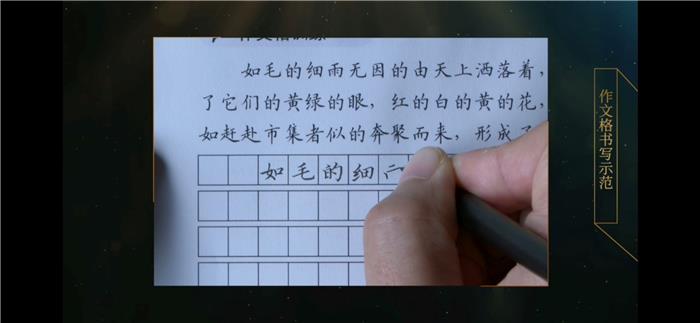 作文格训练
如毛的细雨无因的由天上洒落着，
了它们的黄绿的眼，红的白的黄的花，
如赶赴市集者似的奔聚而来，形成了
如毛的细
作文格书写示范